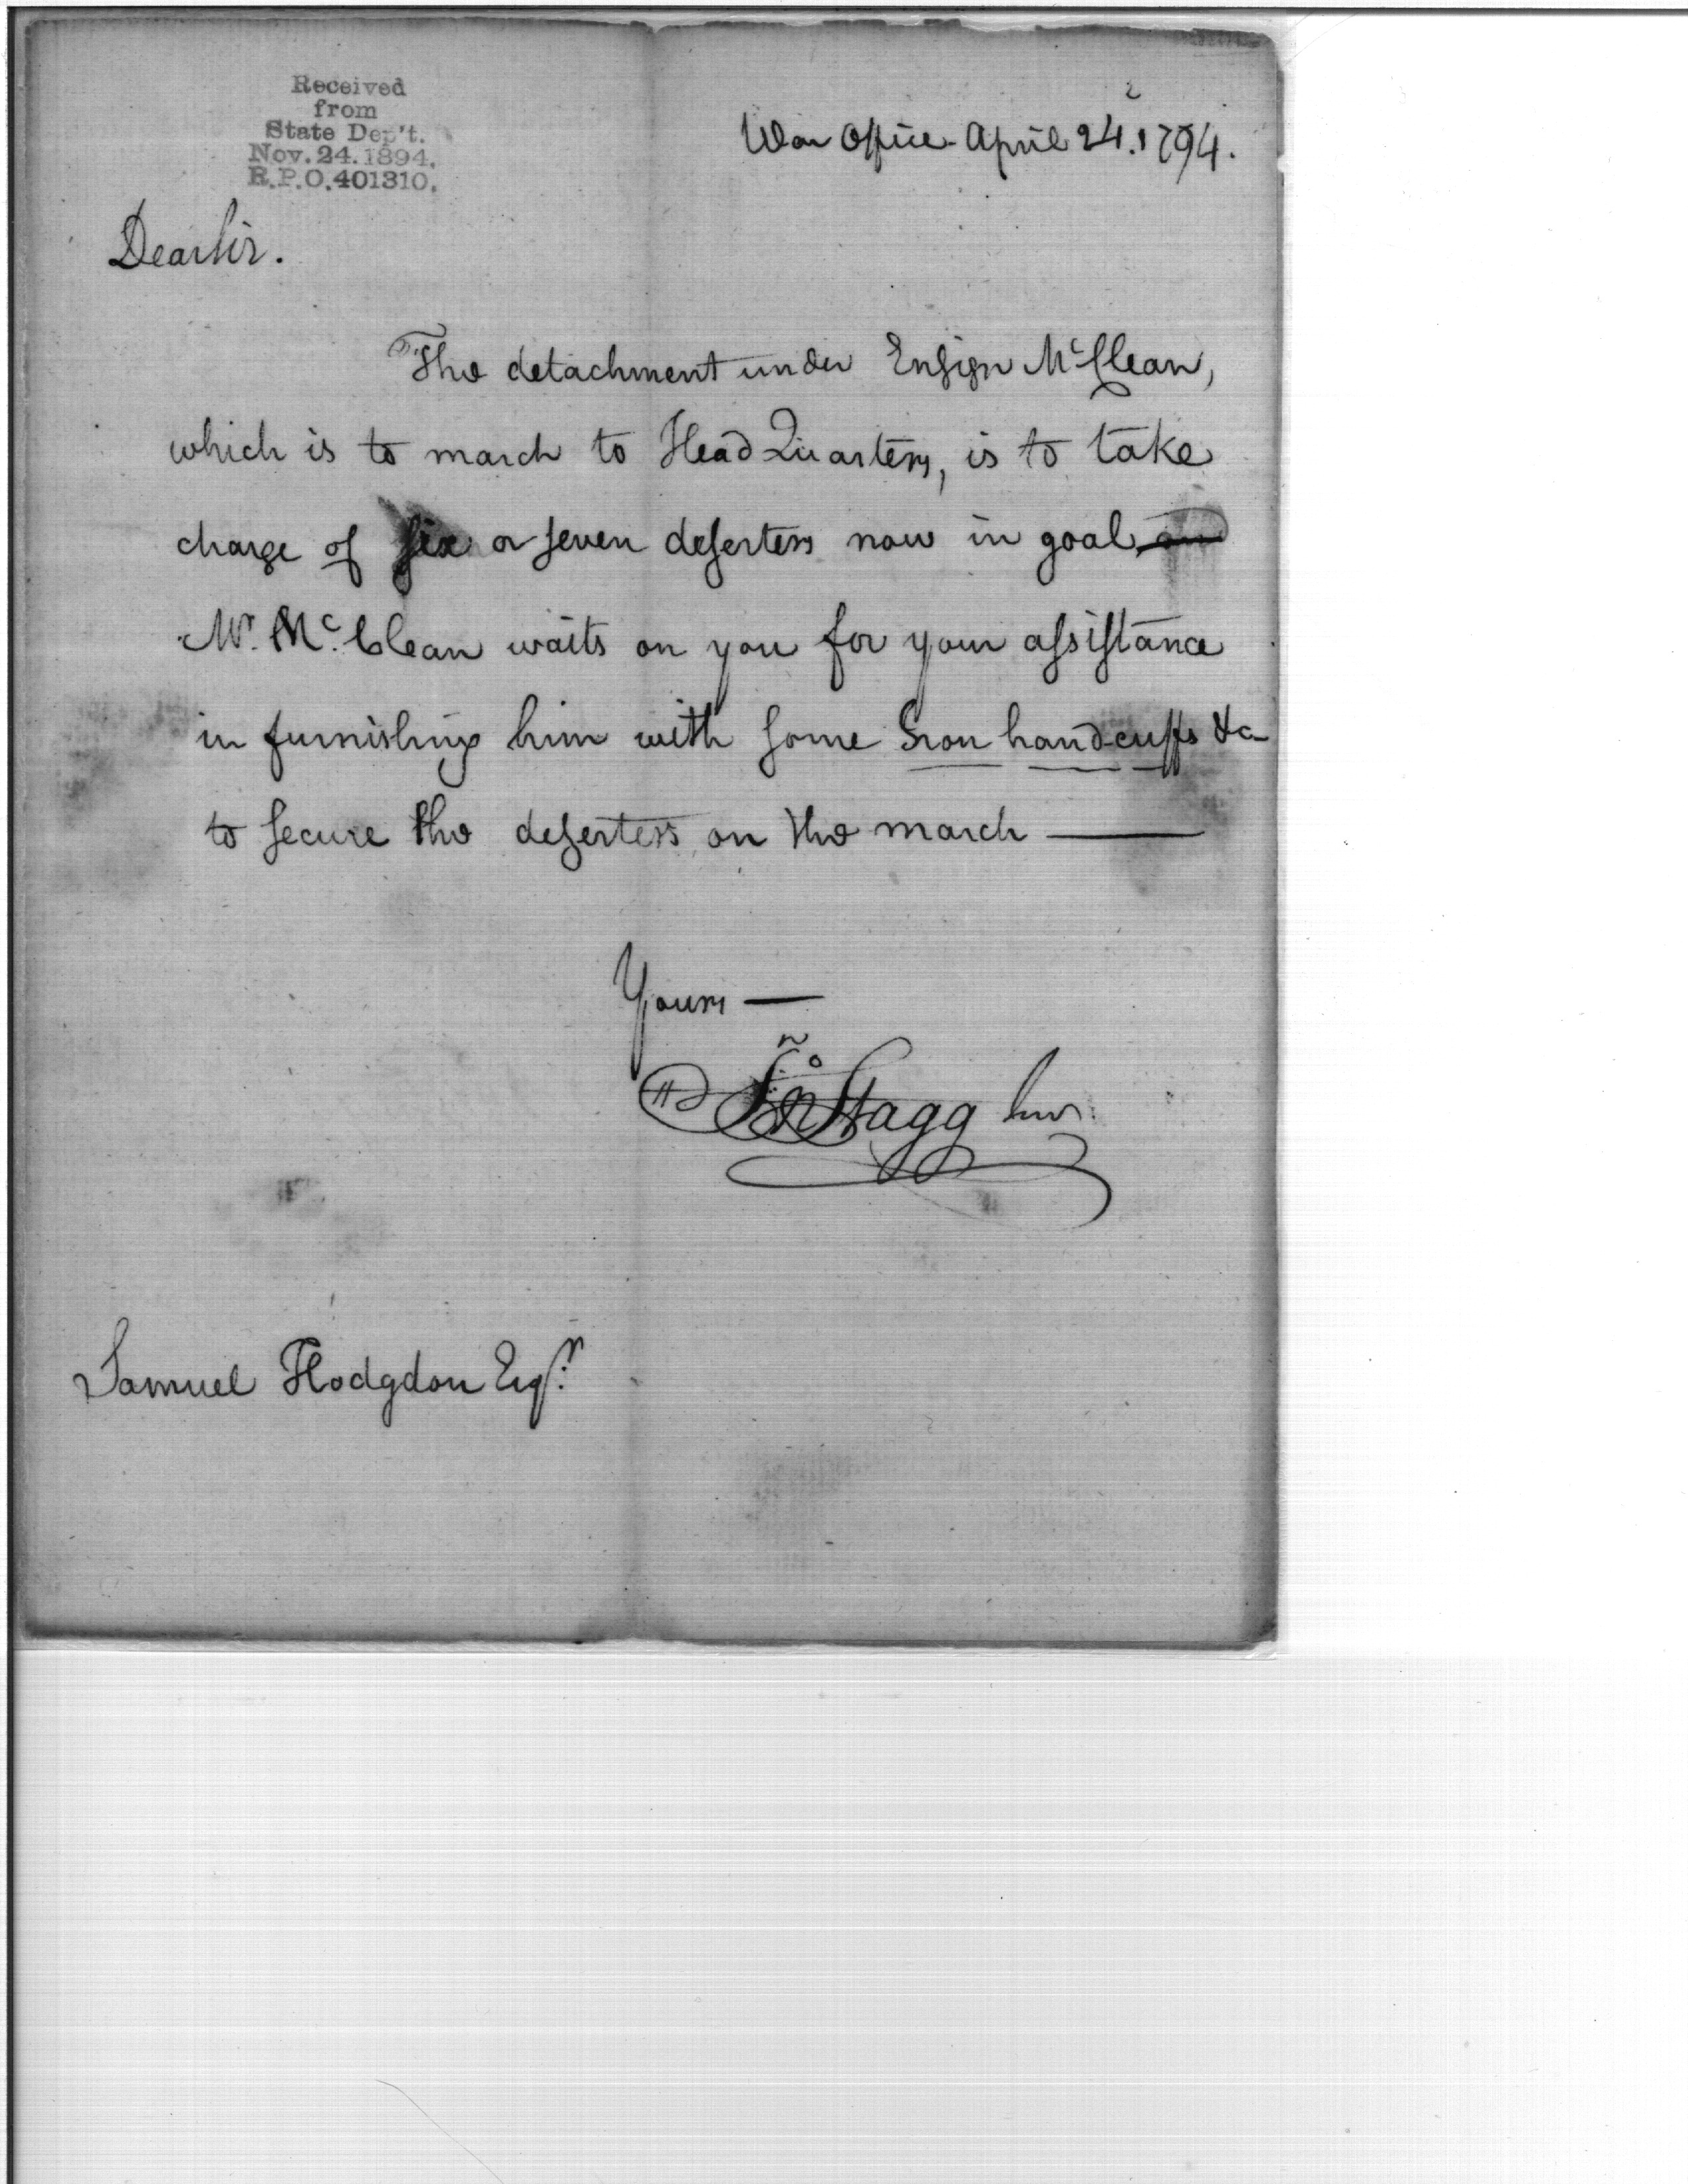 Received
from
State Dep't.
Nov. 24. 1894.
R.P.O. 401310.
War Office April 24. 1794.
Dear Sir.
The detachment under Ensign McClean,
which is to march to Head Quarters, is to take
charge of six or seven deserters now in goal, and
Mr. Mc.Clean waits on you for your assistance
in furnishing him with some Iron hand-cuffs &c
to secure the deserters on the march —
Yours —
Jno Stagg Junr.
Samuel Hodgdon Esqr.